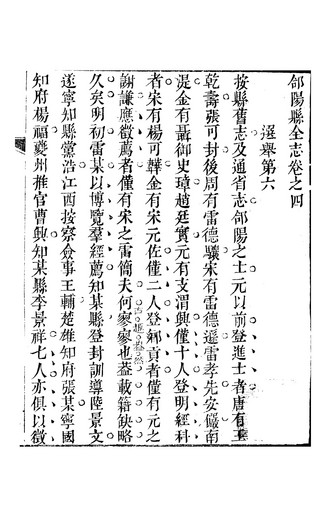 郃陽縣全志卷之四
選舉第六
按縣舊志及通省志郃陽之士元以前登進士者唐有王
乾壽張可封後周有雷德驤宋有雷德遜雷孝先安儼南
湜金有聶御史璋趙廷實元有支渭興僅十人登明經科
者宋有楊可韡金有宋元佐僅二人登鄉貢者僅有元之
謝謙應徵薦者僅有宋之雷簡夫何寥寥也蓋載籍缺略
久矣明初雷某以博覽羣經薦知某縣登封訓導陸景文
遂寧知縣黨浩江西按察僉事王輔楚雄知府張某寧國
知府楊福夔州推官曹興知某縣李景祥七人亦俱以徵